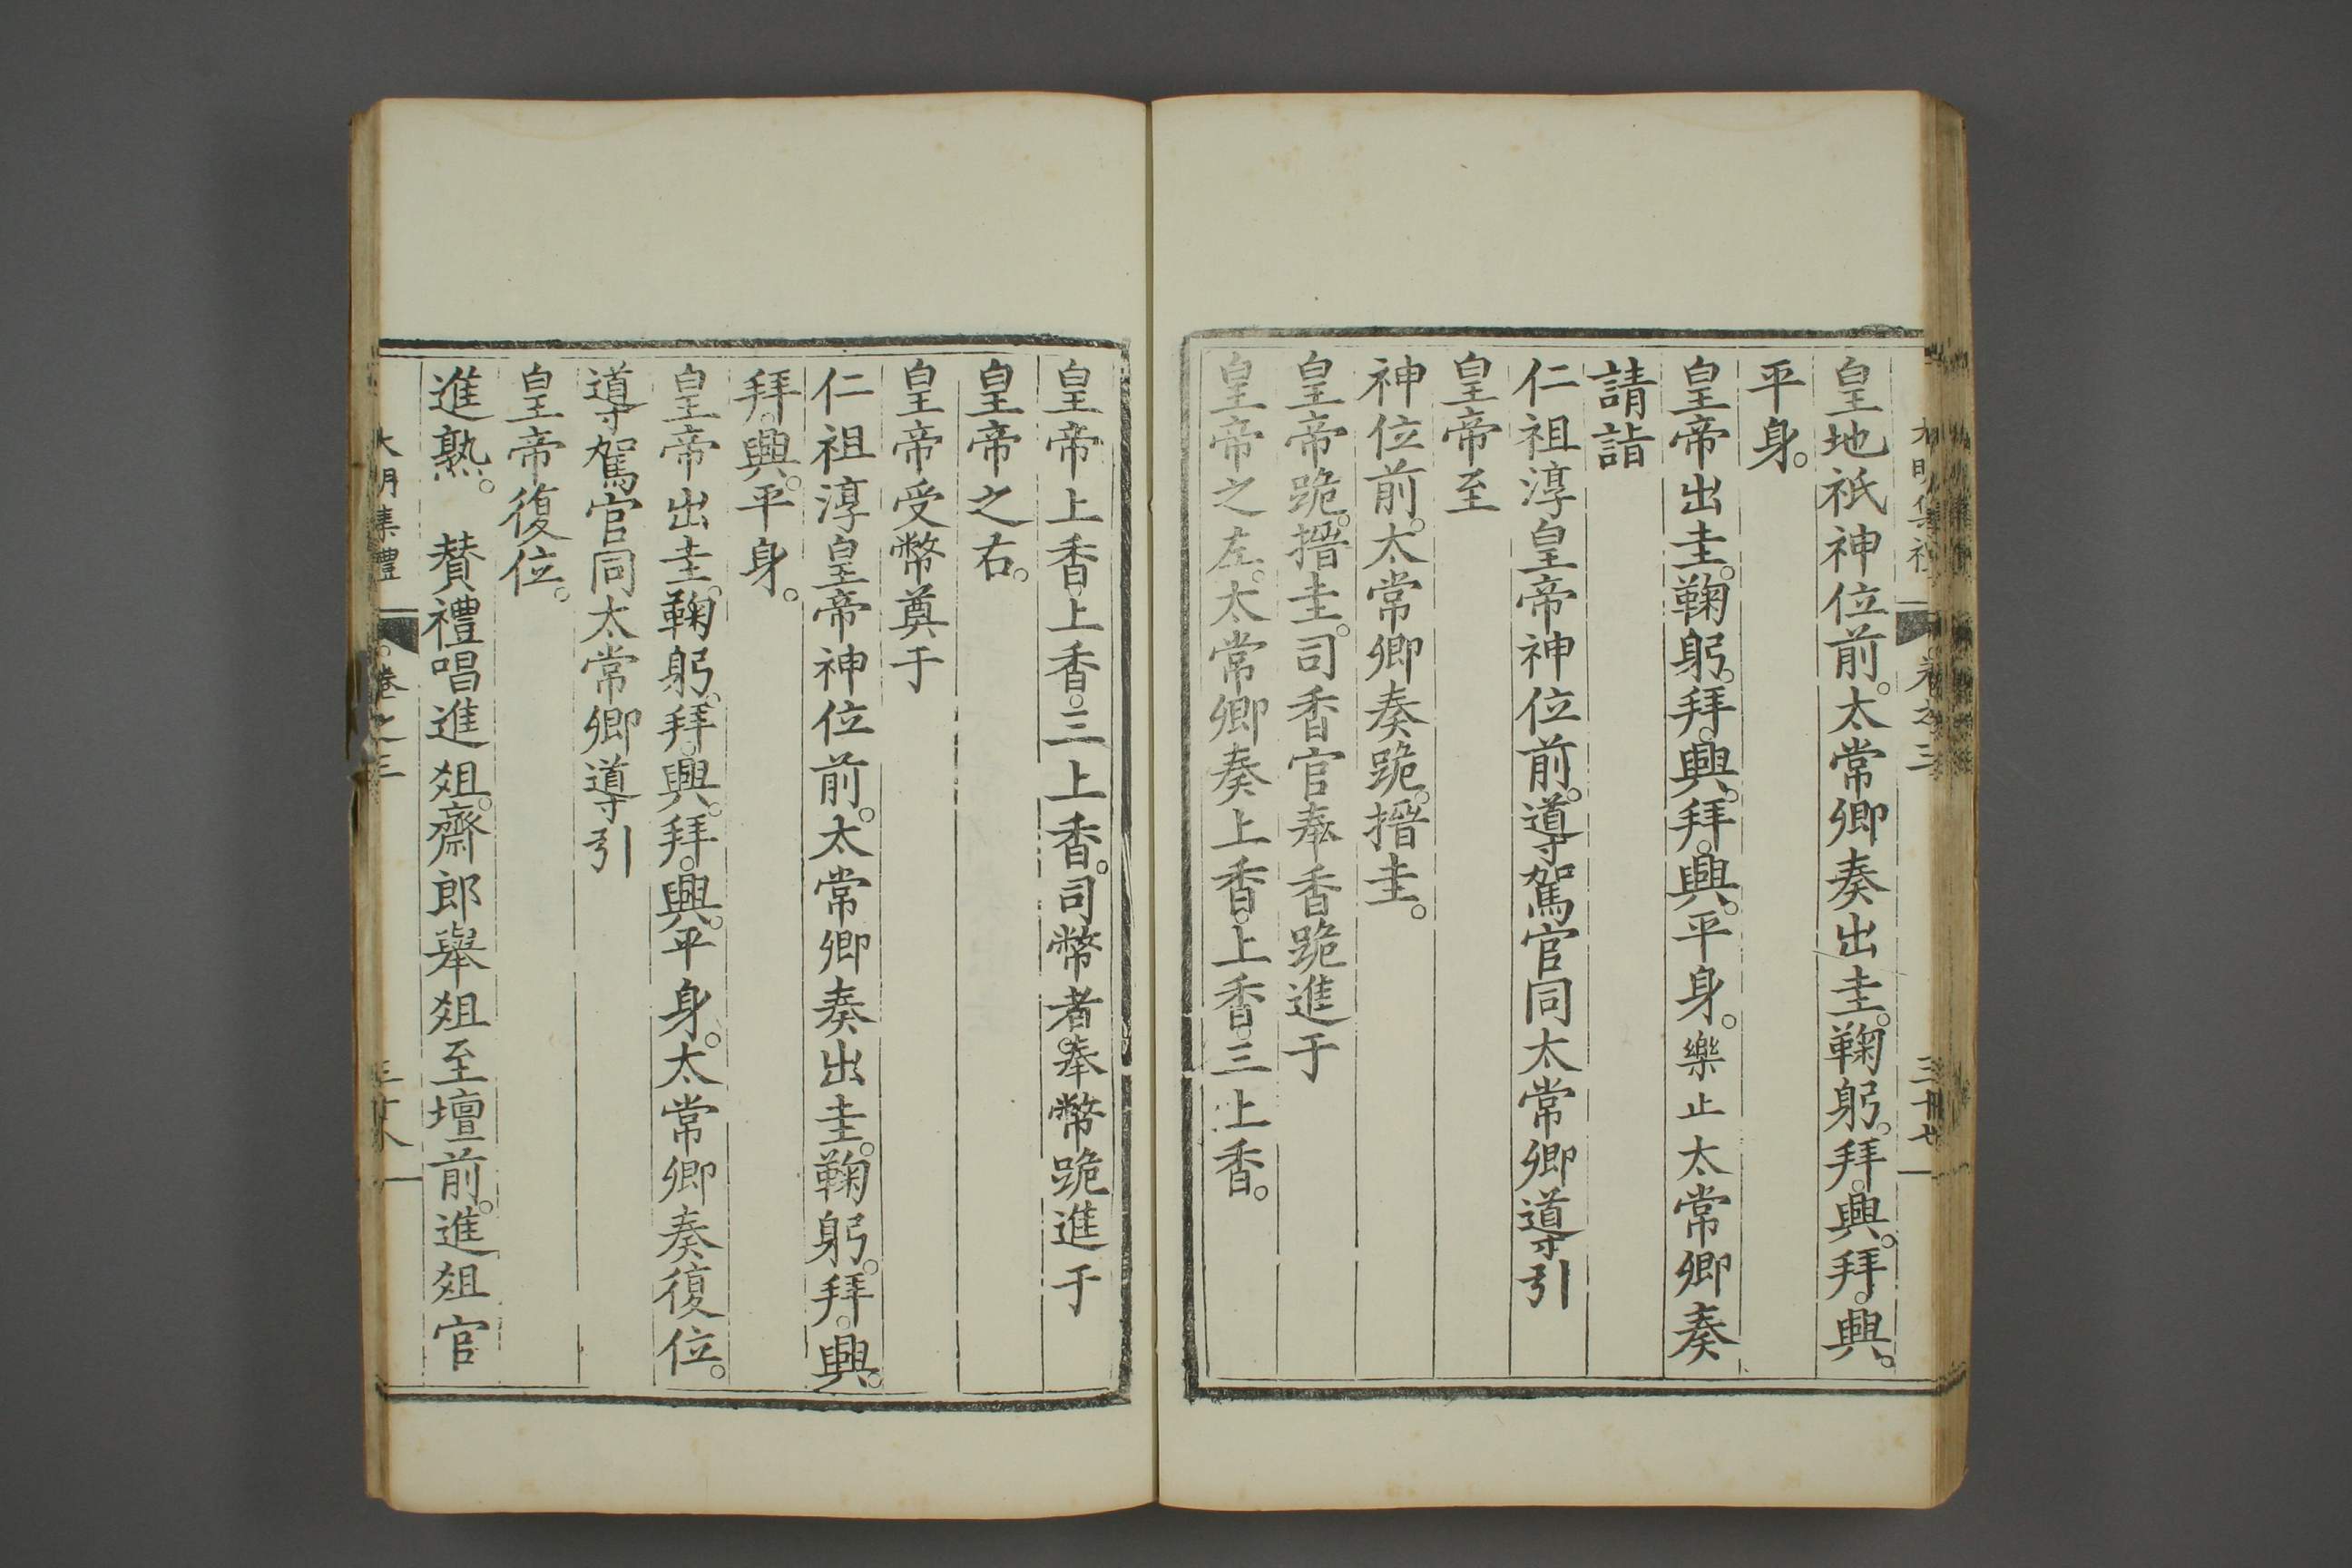 皇地祇神位前。太常卿奏出圭。鞠躬。拜。興。拜。興。
平身。
皇帝出圭。鞠躬。拜。興。拜。興。平身。樂止太常卿奏
請詣
仁祖淳皇帝神位前。導駕官同太常卿導引
皇帝至
神位前。太常卿奏跪。搢圭。
皇帝跪。搢圭。司香官奉香跪進于
皇帝之左。太常卿奏上香。上香。三上香。
皇帝上香。上香。三上香。司幣者。奉幣跪進于
皇帝之右。
皇帝受幣奠于
仁祖淳皇帝神位前。太常卿奏出圭。鞠躬。拜。興。
拜。興。平身。
皇帝出圭。鞠躬。拜。興。拜。興。平身。太常卿奏復位。
導駕官同太常卿導引
皇帝復位。
進熟。　贊禮唱進俎。齋郎舉俎至壇前。進俎官
大明集禮 卷之三